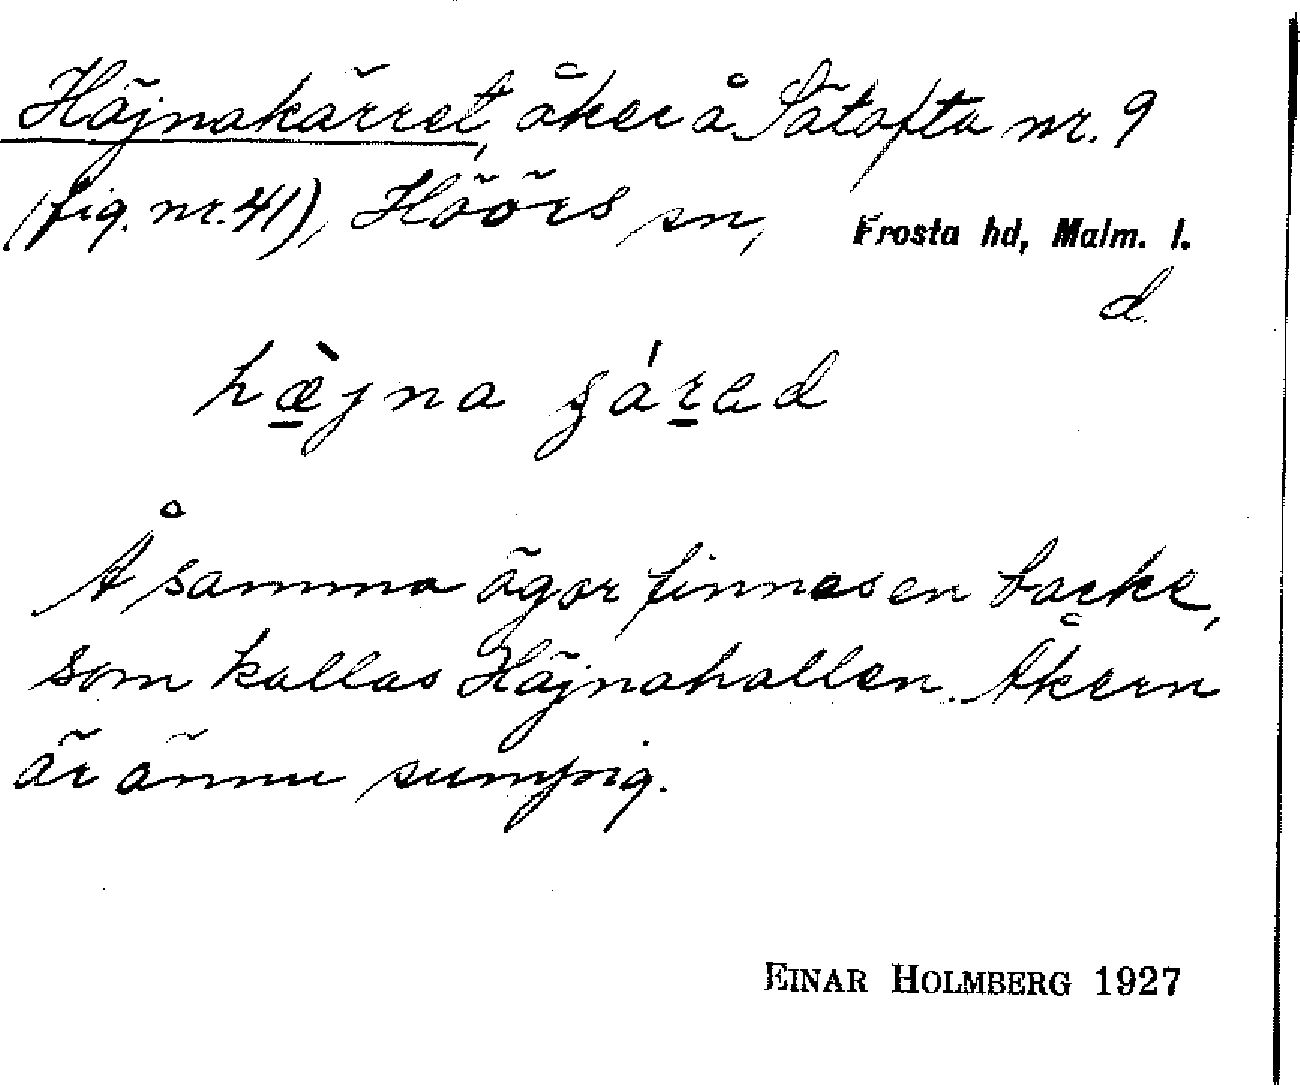 Häjnakärret, åker å Sätofta nr. 9
(fig. nr. 41), Höörs sn, Frosta hd, Malm. l.
d.
hæ̀jna ɡárad
Å samma ägor finnes en backe,
som kallas Häjnahallen. Åkern
är ännu sumpig.
EINAR HOLMBERG 1927